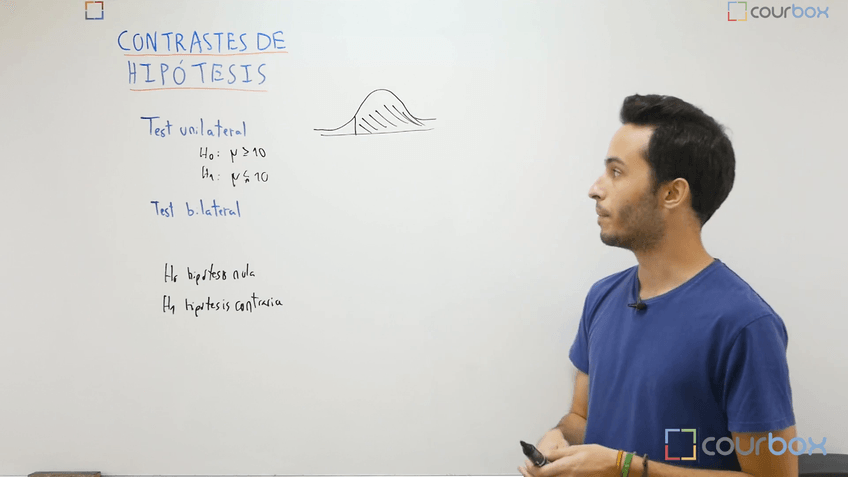 courbox
CONTRASTES DE
HIPÓTESIS
Test unilateral
H₀: μ ≥ 10
H₁: μ ≤ 10
Test bilateral
H₀ hipótesis nula
H₁ hipótesis contraria
courbox